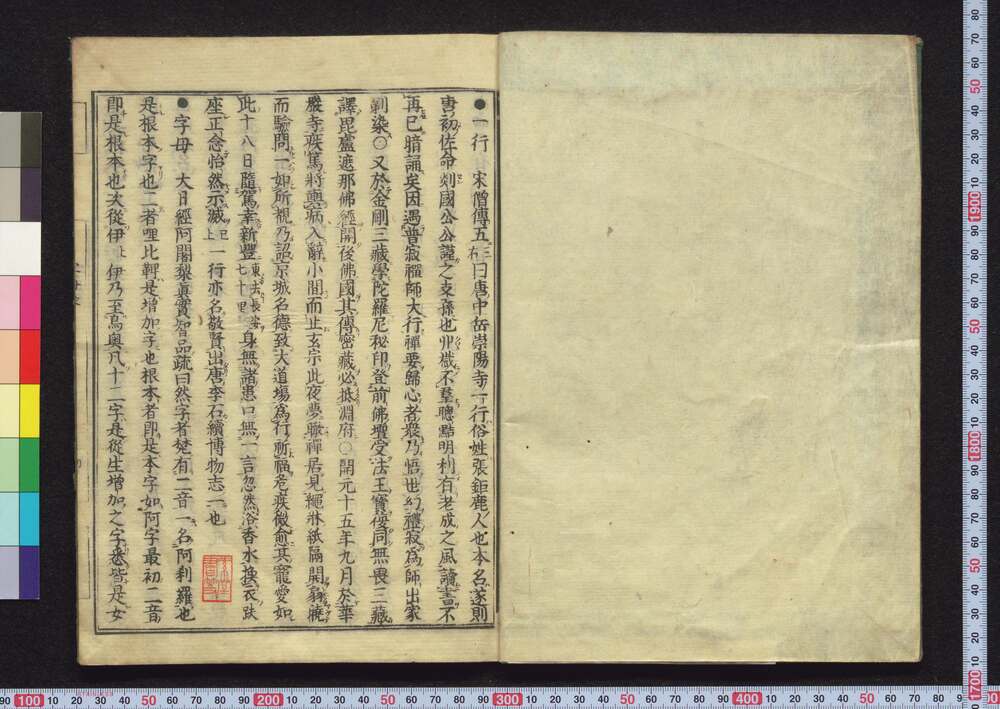 ●一行　宋僧傳五三右曰唐中岳嵩陽寺一行俗姓張鉅鹿人也本名遂則
唐初佐命剡國公公謹之支孫也丱歲不羣聰黠明利有老成之風讀書不
再已暗誦矣因遇普寂禪師大行禪要歸心者衆乃悟世幻禮寂爲師出家
剃染○又於金剛三藏學陀羅尼秘印登前佛壇受法王寶復同無畏三藏
譯毘盧遮那佛經開後佛國其傳密藏必抵淵府○開元十五年九月於華
嚴寺疾篤將輿病入辭小間而止玄宗此夜夢瞰禪居見繩牀紙隔開扇曉
而驗問一如所覩乃詔京城名德致大道場爲行祈福危疾微愈其寵愛如
此十八日隨駕幸新豐東去長安七十里身無諸患口無一言忽然浴香水換衣趺
座正念怡然示滅已上一行亦名敬賢出唐李石續博物志二也
●字母　大日經阿闍梨眞實智品疏曰然字者梵有二音一名阿刹羅也
是根本字也二者哩比鞞是增加字也根本者即是本字如阿字最初二音
即是根本也次從伊上伊乃至烏奧凡十二字是從生增加之字悉皆是女